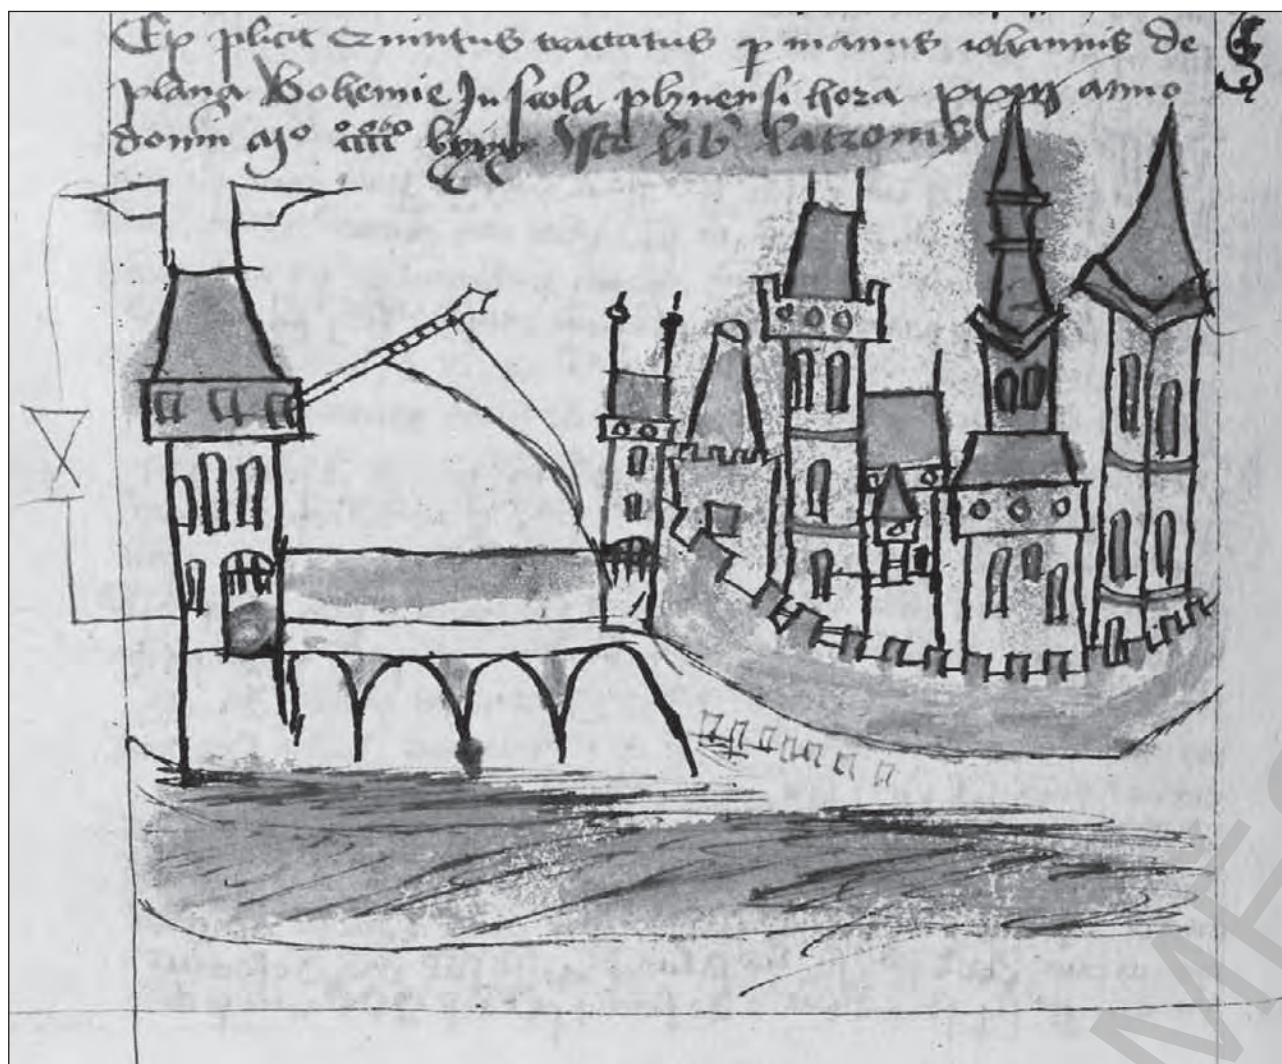 Ex plicit Quintus tractatus p manus iohannis de
plana Bohemie In scola plznensi hora anno
domini Mo cccc Iste lib latronis
MĚ